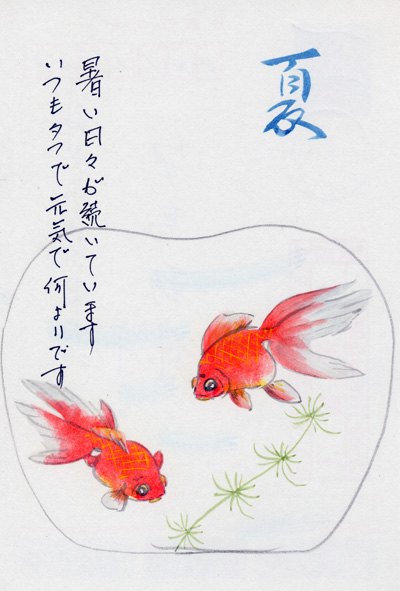 夏
暑い日々が続いています
いつもタフで元気で何よりです